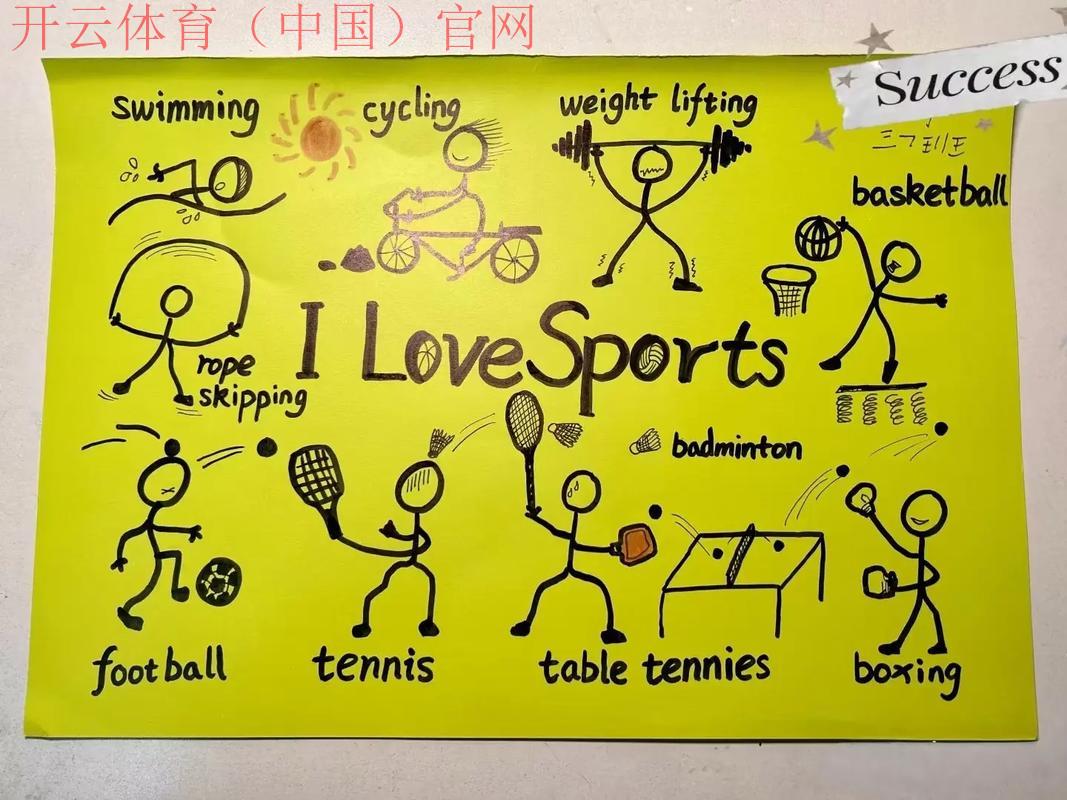 开云体育（中国）官网
Success
swimming
cycling
weight lifting
basketball
I Love Sports
rope
skipping
badminton
football
tennis
table tennies
boxing